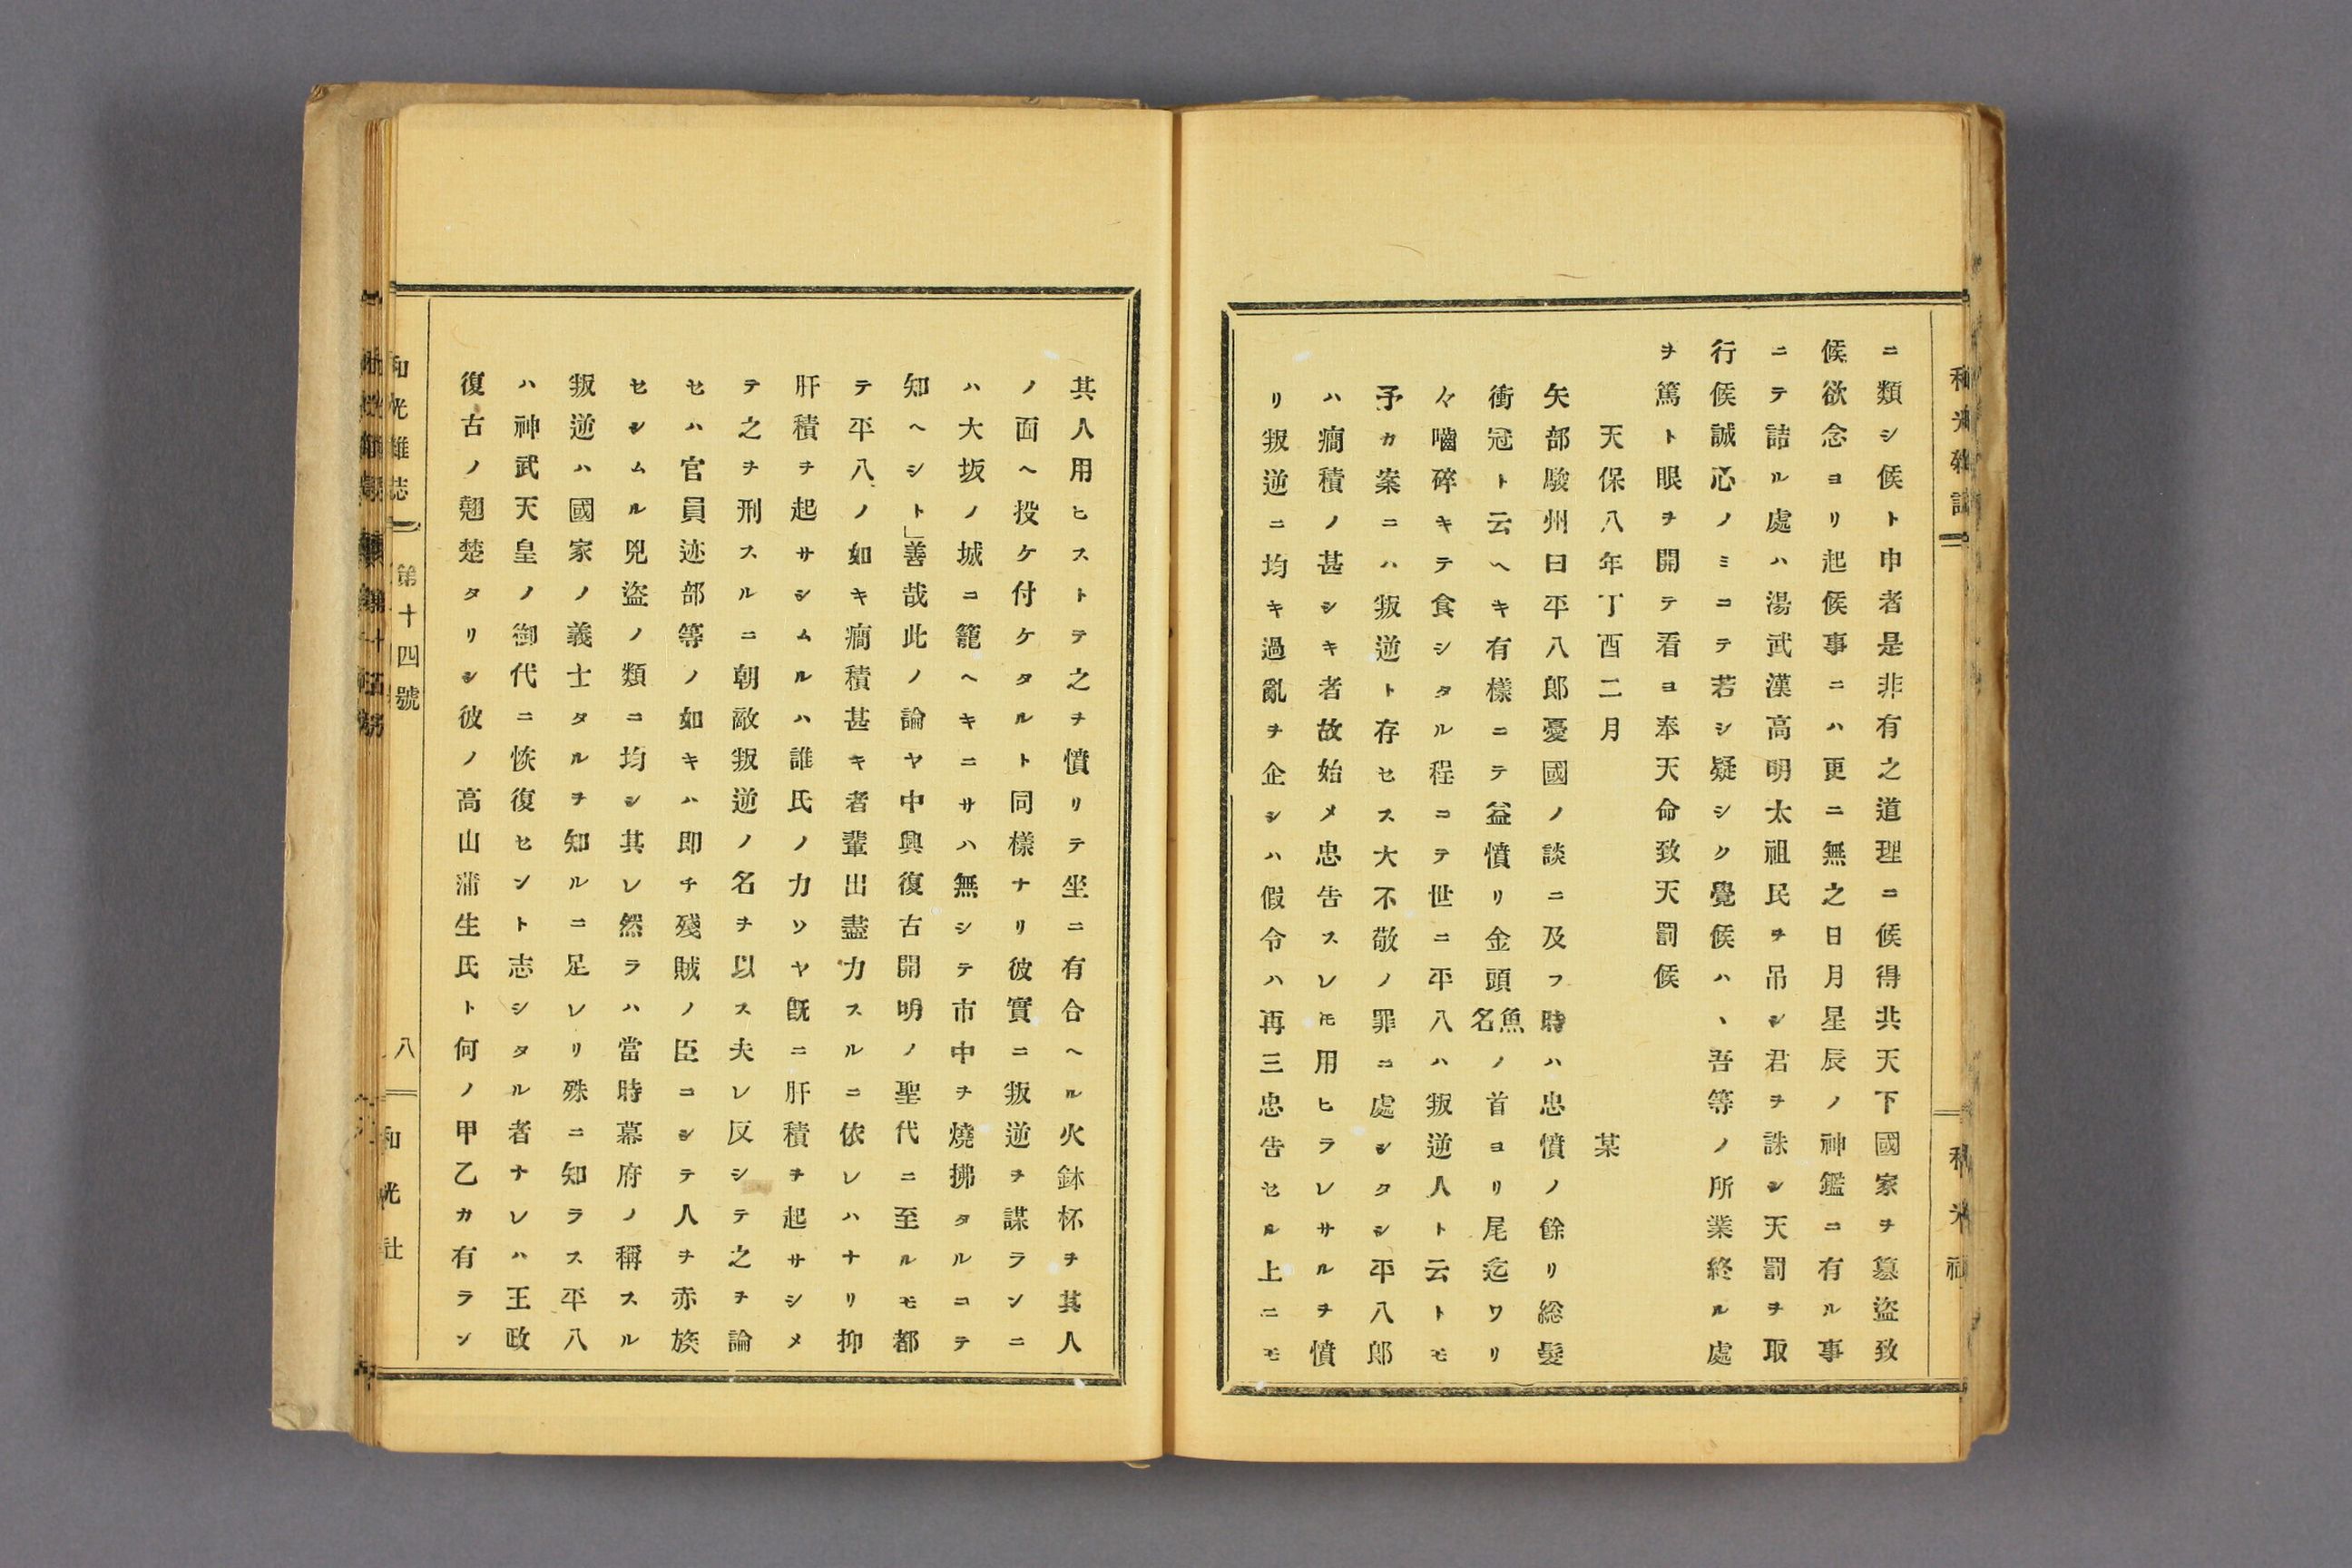 ニ類シ候ト申者是非有之道理ニ候得共天下國家ヲ簒盜致
候欲念ヨリ起候事ニハ更ニ無之日月星辰ノ神鑑ニ有ル事
ニテ詰ル處ハ湯武漢高明太祖民ヲ吊シ君ヲ誅シ天罰ヲ取
行候誠心ノミニテ若シ疑シク覺候ハヽ吾等ノ所業終ル處
ヲ篤ト眼ヲ開テ看ヨ奉天命致天罰候
天保八年丁酉二月 某
矢部駿州曰平八郎憂國ノ談ニ及フ時ハ忠憤ノ餘リ総髮
衝冠ト云ヘキ有樣ニテ益憤リ金頭魚名ノ首ヨリ尾迄ワリ
々嚙碎キテ食シタル程ニテ世ニ平八ハ叛逆人ト云トモ
予カ案ニハ叛逆ト存セス大不敬ノ罪ニ處シタシ平八郎
ハ癇積ノ甚シキ者故始メ忠告スレ𪜈用ヒラレサルヲ憤
リ叛逆ニ均キ過亂ヲ企シハ假令ハ再三忠告セル上ニモ
和光雜誌 和光社
其人用ヒストテ之ヲ憤リテ坐ニ有合ヘル火鉢杯ヲ其人
ノ面ヘ投ケ付ケタルト同樣ナリ彼實ニ叛逆ヲ謀ランニ
ハ大坂ノ城ニ籠ヘキニサハ無シテ市中ヲ燒拂タルニテ
知ヘシト」善哉此ノ論ヤ中興復古開明ノ聖代ニ至ルモ都
テ平八ノ如キ癇積甚キ者輩出盡力スルニ依レハナリ抑
肝積ヲ起サシムルハ誰氏ノ力ソヤ既ニ肝積ヲ起サシメ
テ之ヲ刑スルニ朝敵叛逆ノ名ヲ以ス夫レ反シテ之ヲ論
セハ官員迹部等ノ如キハ即チ殘賊ノ臣ニシテ人ヲ赤族
セシムル兇盜ノ類ニ均シ其レ然ラハ當時幕府ノ稱スル
叛逆ハ國家ノ義士タルヲ知ルニ足レリ殊ニ知ラス平八
ハ神武天皇ノ御代ニ恢復セント志シタル者ナレハ王政
復古ノ翹楚タリシ彼ノ高山蒲生氏ト何ノ甲乙カ有ラン
和光雜誌 第十四號 八 和光社